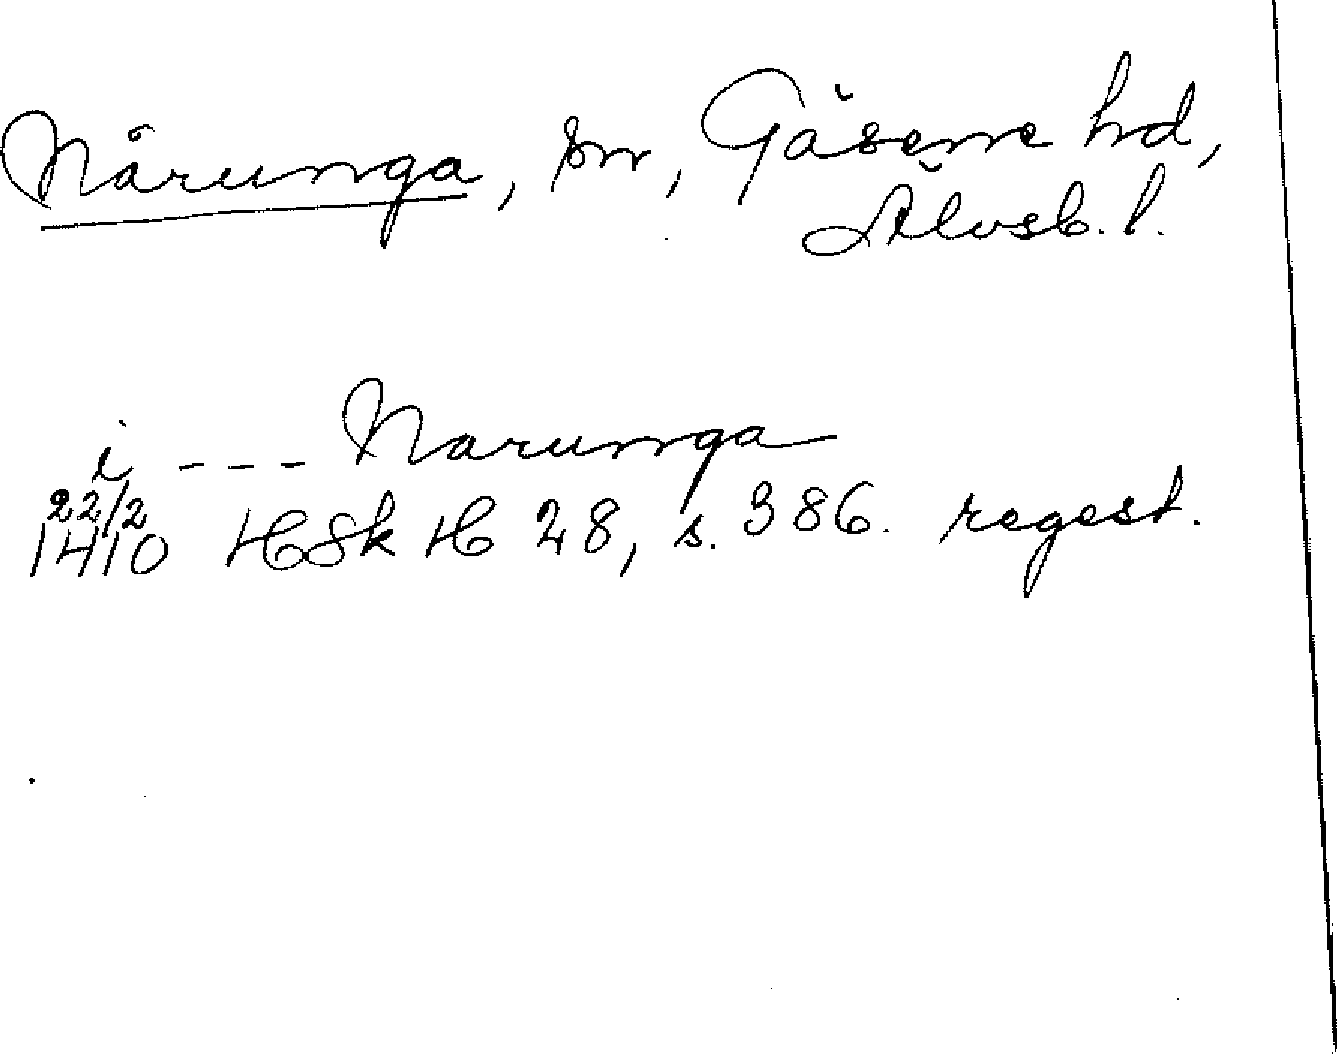 Nårunga, sn, Gäsene hd,
Älvsb. l.
i --- Narunga
22/2
1410 HSk H 28, s. 386. regest.